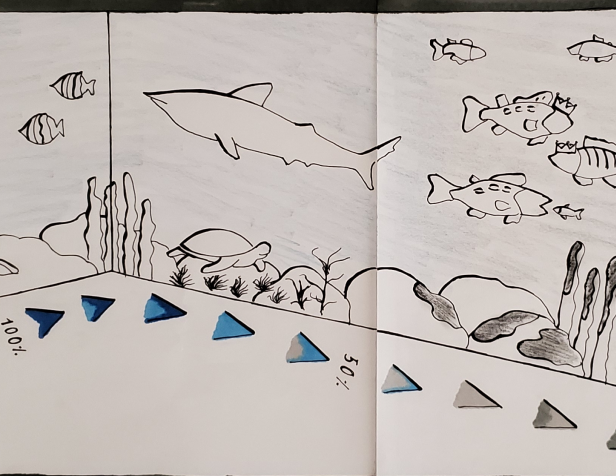 100%
50%